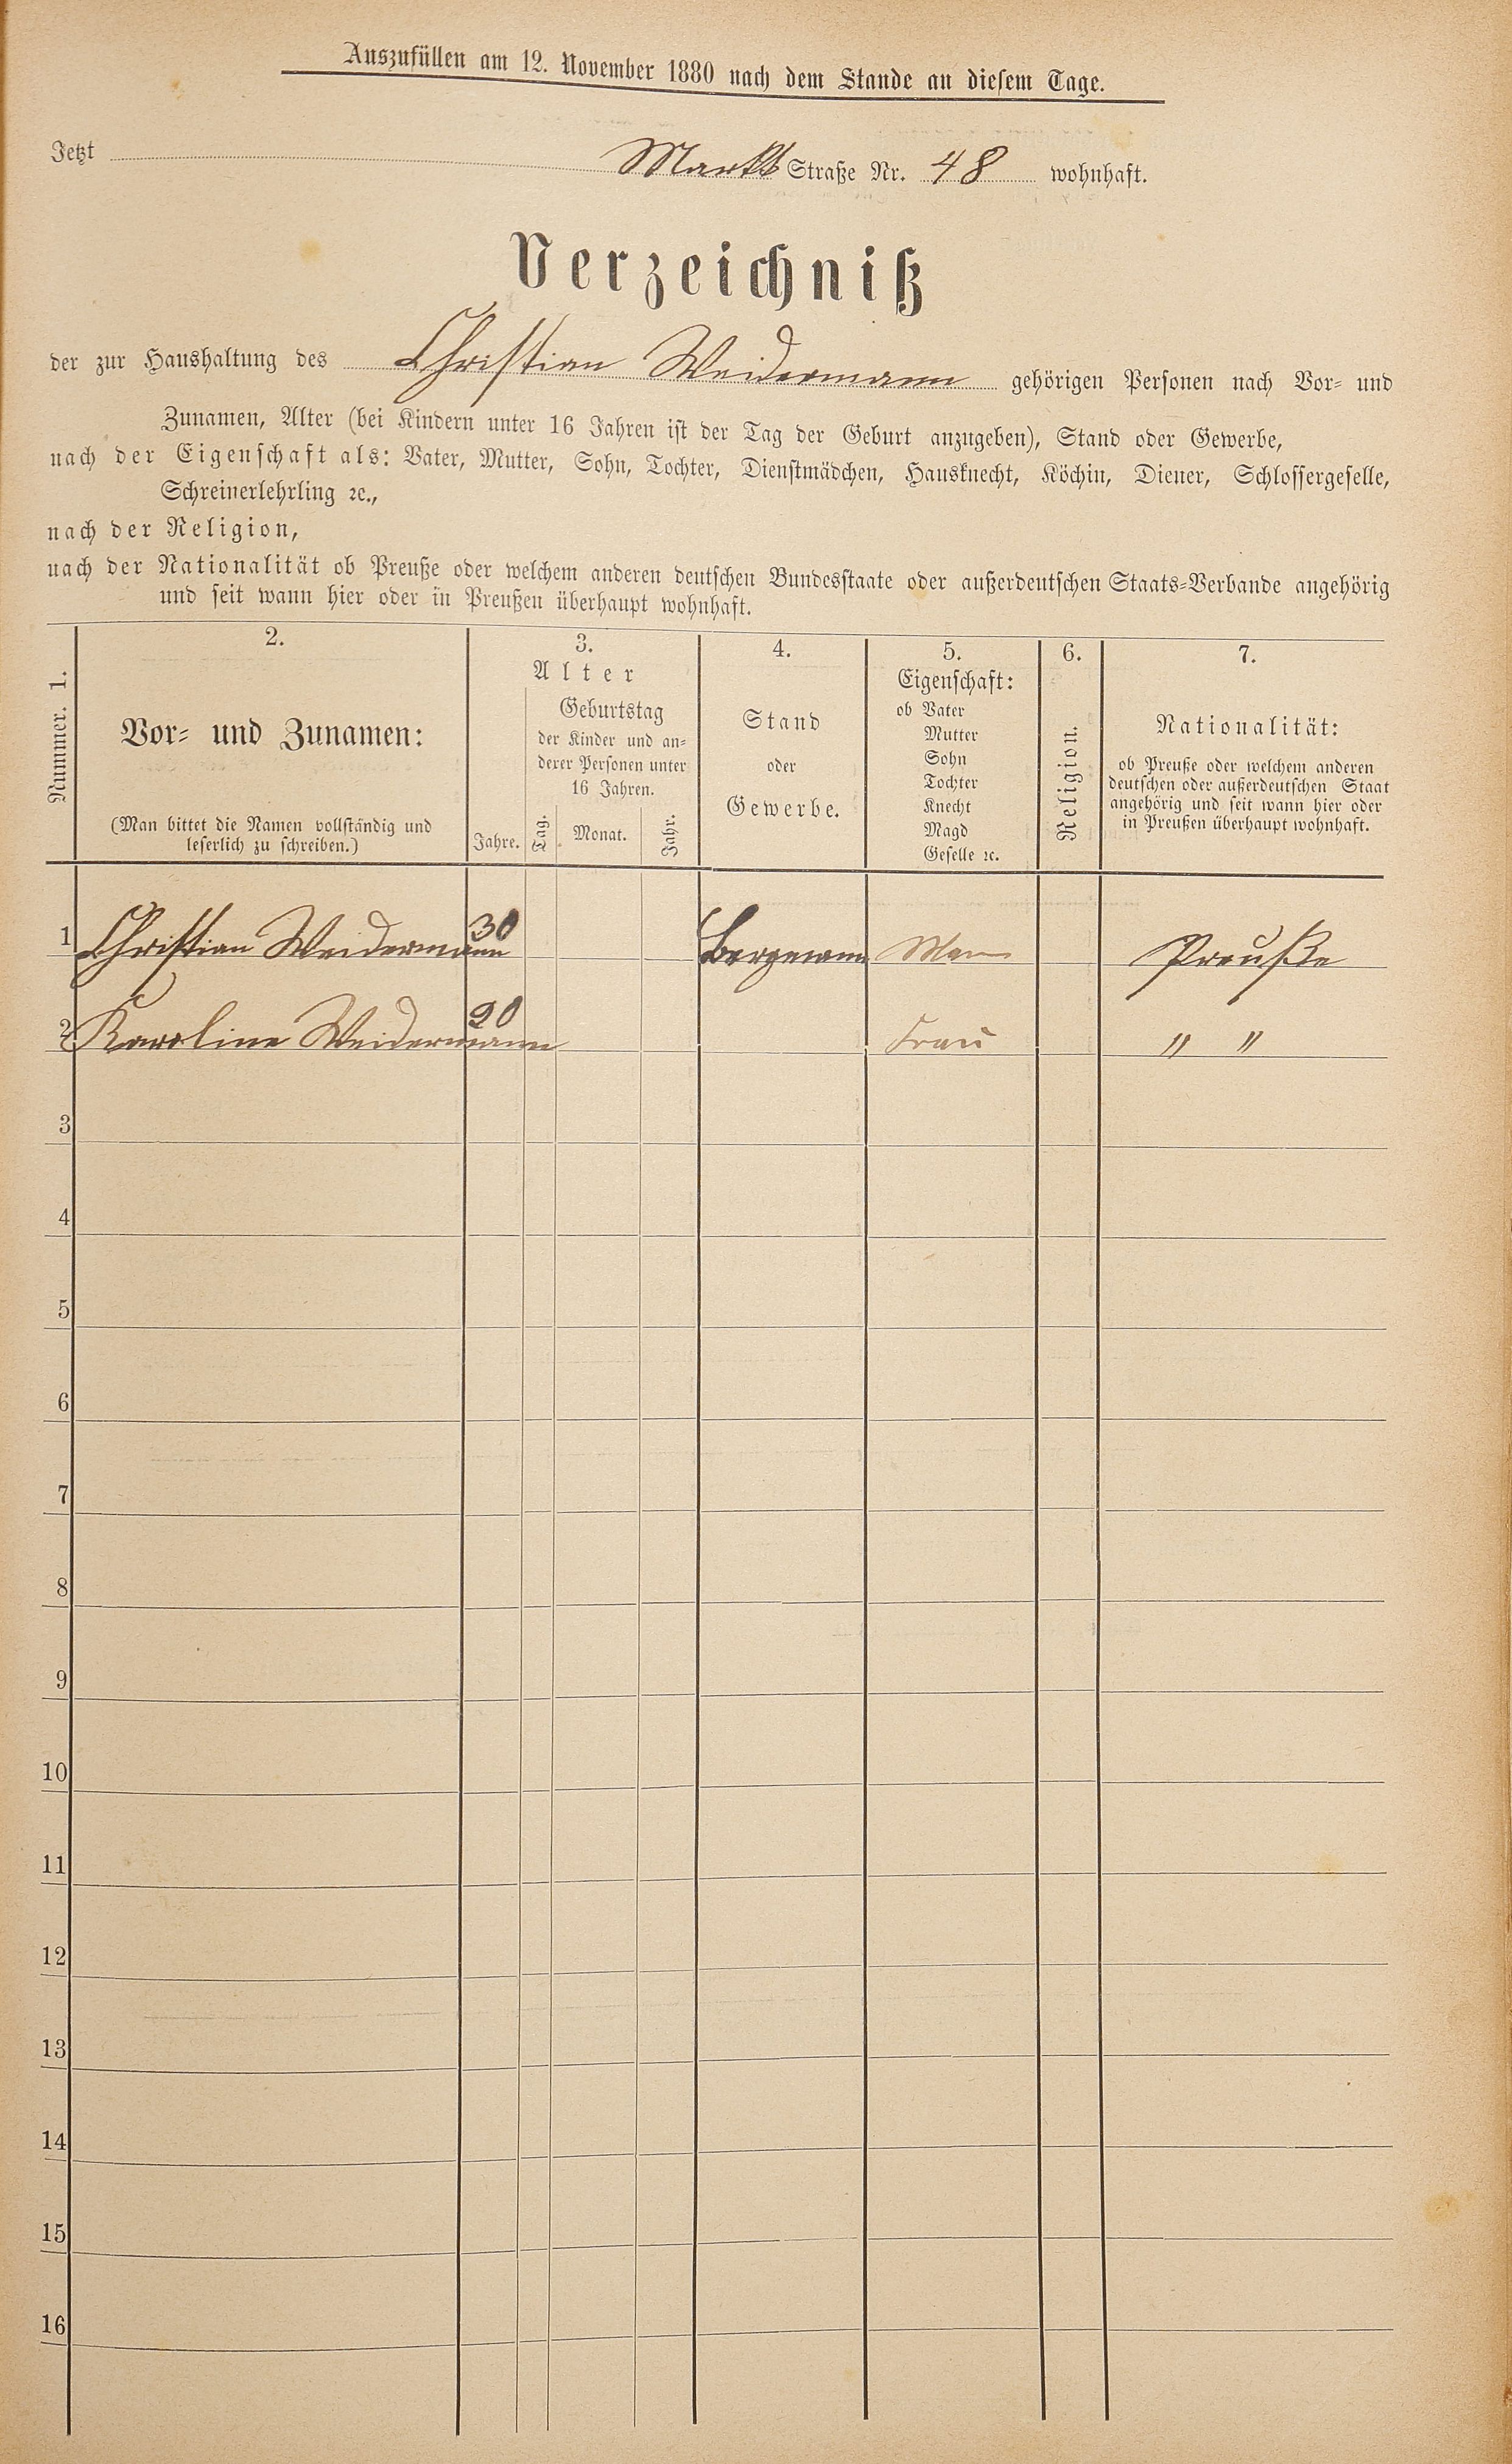 Auszufüllen am 12. November 1880 nach dem Stande an diesem Tage.
Jetzt Markt Straße Nr. 48 wohnhaft.
Verzeichniß
der zur Haushaltung des Christian Weidermann gehörigen Personen nach Vor- und
Zunamen, Alter (bei Kindern unter 16 Jahren ist der Tag der Geburt anzugeben), Stand oder Gewerbe,
nach der Eigenschaft als: Vater, Mutter, Sohn, Tochter, Dienstmädchen, Hausknecht, Köchin, Diener, Schlossergeselle,
Schreinerlehrling ꝛc.,
nach der Religion,
nach der Nationalität ob Preuße oder welchem anderen deutschen Bundesstaate oder außerdeutschen Staats-Verbande angehörig
und seit wann hier oder in Preußen überhaupt wohnhaft.
Nummer. 1.
2.
Vor- und Zunamen:
(Man bittet die Namen vollständig und
leserlich zu schreiben.)
3.
Alter
Geburtstag
der Kinder und an-
derer Personen unter
16 Jahren.
Jahre. Tag. Monat. Jahr.
4.
Stand
oder
Gewerbe.
5.
Eigenschaft:
ob Vater
Mutter
Sohn
Tochter
Knecht
Magd
Geselle ꝛc.
6.
Religion.
7.
Nationalität:
ob Preuße oder welchem anderen
deutschen oder außerdeutschen Staat
angehörig und seit wann hier oder
in Preußen überhaupt wohnhaft.
1 Christian Weidermann 30 Bergmann Mann Preuße
2 Karoline Weidermann 20 Frau " "
3
4
5
6
7
8
9
10
11
12
13
14
15
16